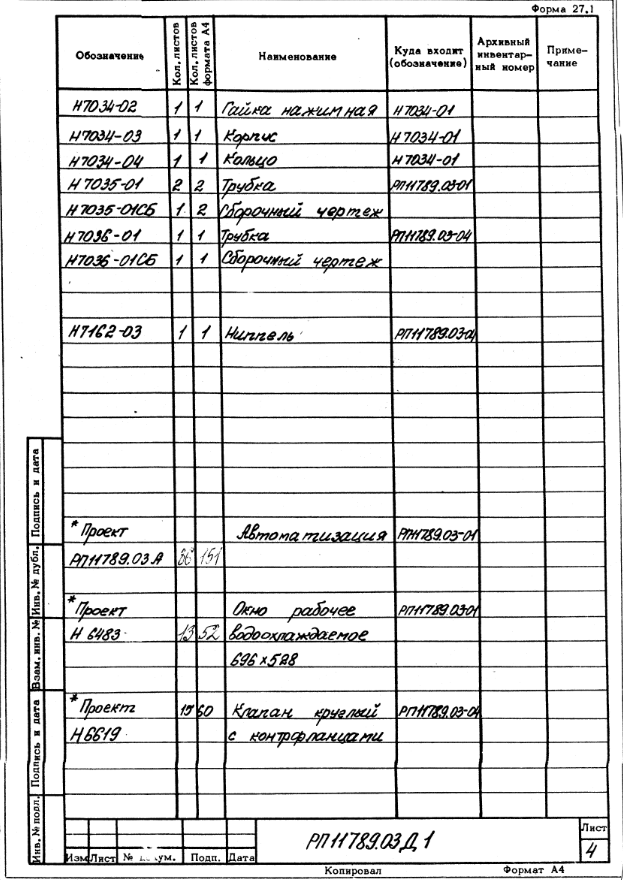 Форма 27.1
Обозначение Кол. листов Кол. листов формата А4 Наименование Куда входит (обозначение) Архивный инвентарный номер Примечание
Н7034-02 1 1 Гайка нажимная Н7034-01
Н7034-03 1 1 Корпус Н7034-01
Н7034-04 1 1 Кольцо Н7034-01
Н7035-01 2 2 Трубка РП11789.03-01
Н7035-01СБ 1 2 Сборочный чертеж
Н7036-01 1 1 Трубка РП11789.03-04
Н7036-01СБ 1 1 Сборочный чертеж
Н7162-03 1 1 Ниппель РП11789.03-04
* Проект Автоматизация РП11789.03-01
РП11789.03А 151
* Проект Окно рабочее РП11789.03-01
Н 6483 13 52 водоохлаждаемое
696×528
* Проект 60 Клапан круглый РП11789.03-04
Н6619 с контрфланцами
Подпись и дата
Инв. № дубл.
Взам. инв. №
Подпись и дата
Инв. № подл.
РП11789.03Д1
Лист
4
Изм Лист № Подп. Дата
Копировал Формат А4